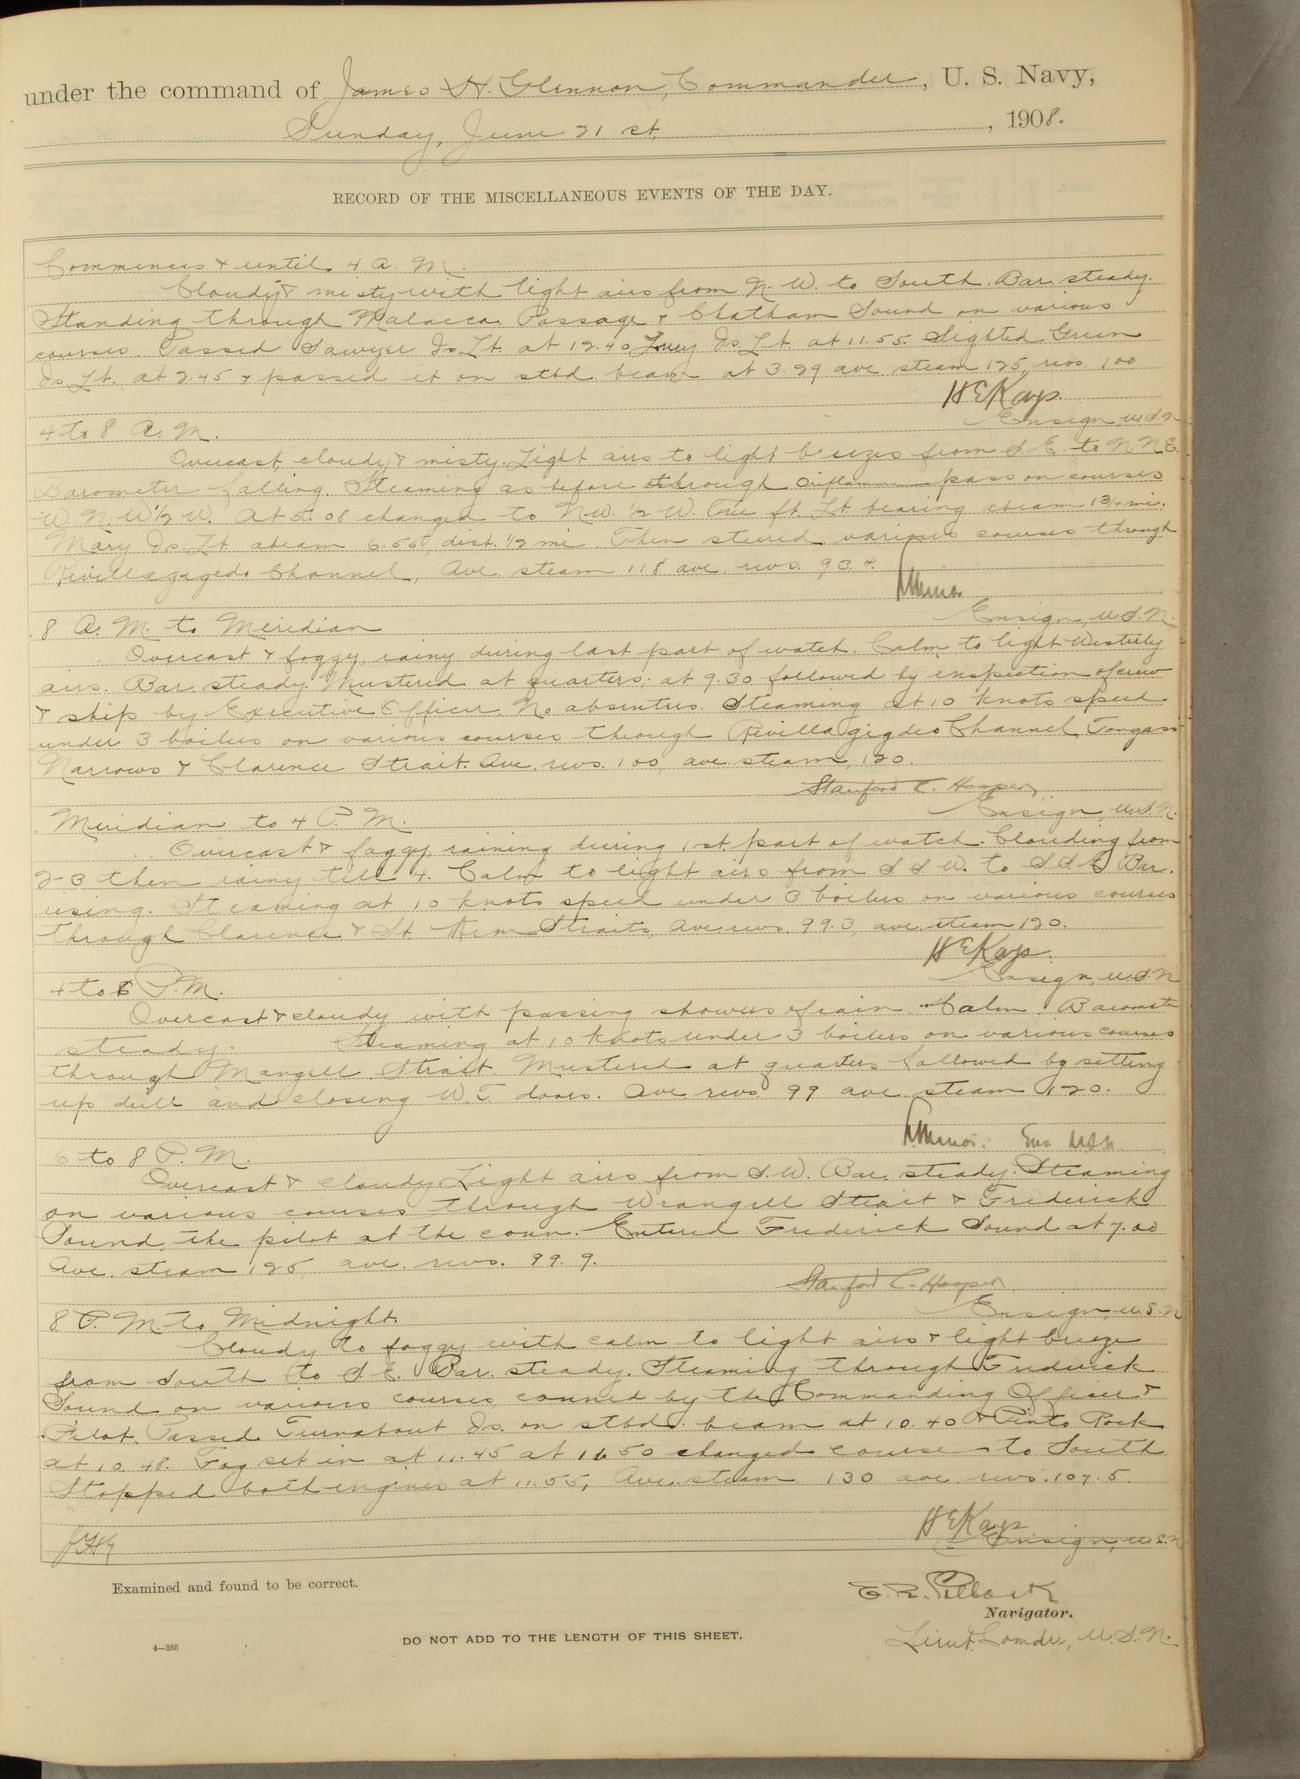 under the command of James H. Glennon, Commander, U. S. Navy,
Sunday, June 21 st. , 1908.
RECORD OF THE MISCELLANEOUS EVENTS OF THE DAY.
Commences & until 4 A. M.
Cloudy & misty with light airs from N. W. to South. Bar. steady.
Standing through Malacca Passage & Chatham Sound on various
courses. Passed Sawyer Is. Lt. at 12.40 Lucy Is. Lt. at 11.55. Sighted Green
Is. Lt. at 2.45 & passed it on stbd. beam at 3.29 ave steam 125, revs 100
H E Kays.
Ensign U.S.N.
4 to 8 A. M.
Overcast, cloudy & misty. Light airs to light breezes from S. E. to N N E.
Barometer falling. Steaming as before through pass on courses
W. N. W ½ W. At 5.08 changed to N.W. ½ W. Tree Pt. Lt. bearing abeam 1¾ mi.
Mary Is. Lt. abeam 6.55, dist. ½ mi. Then steered various courses through
Revillagigedo Channel, Ave. steam 118 ave. revs. 93.4.
Ensign, U.S.N.
8 A. M. to Meridian
Overcast & foggy, rainy during last part of watch. Calm to light Westerly
airs. Bar steady. Mustered at quarters; at 9.30 followed by inspection of crew
& ship by Executive Officer. No absentees. Steaming at 10 knots speed
under 3 boilers on various courses through Revillagigdeo Channel, Tongass
Narrows & Clarence Strait. Ave. revs. 100, ave. steam, 120.
Stanford C. Hooper,
Ensign, U.S.N.
Meridian to 4 P. M.
Overcast & foggy, raining during 1st. part of watch. Clouding from
2-3 then rainy till 4. Calm to light airs from S S W. to S S E Bar.
rising. Steaming at 10 knots speed under 3 boilers on various courses
through Clarence & St. Straits, Ave revs. 99.3, ave. steam 120.
H E Kays.
Ensign, U.S.N
4 to 6 P. M.
Overcast & cloudy with passing showers of rain. Calm. Baromete
steady. Steaming at 10 knots under 3 boilers on various courses
through Wrangell Strait. Mustered at quarters followed by setting
up drill and closing W. T. doors. Ave revs 99 ave steam 120.
Ens U.S.N.
6 to 8 P. M.
Overcast & cloudy. Light airs from S. W. Bar. steady. Steaming
on various courses through Wrangell Strait & Frederick
Sound, the pilot at the conn. Entered Frederick Sound at 7.00
Ave. steam 125, ave. revs. 99.9.
Stanford C. Hooper
Ensign, U.S.N
8 P. M. to Midnight
Cloudy to foggy with calm to light airs & light breeze
from South to S. E. Bar. steady. Steaming through Frederick
Sound on various courses conned by the Commanding Officer &
Pilot. Passed Turnabout Is. on stbd. beam at 10.40 & Pinto Rock
at 10.48. Fog set in at 11.45 at 11.50 changed course to South
Stopped both engines at 11.55, Ave. steam 130 ave. revs. 107.5.
H E Kays
Ensign, U.S.N
JHG
Examined and found to be correct.
E. R. Pollock
Navigator.
Lieut. Comdr., U.S.N.
4—265
DO NOT ADD TO THE LENGTH OF THIS SHEET.